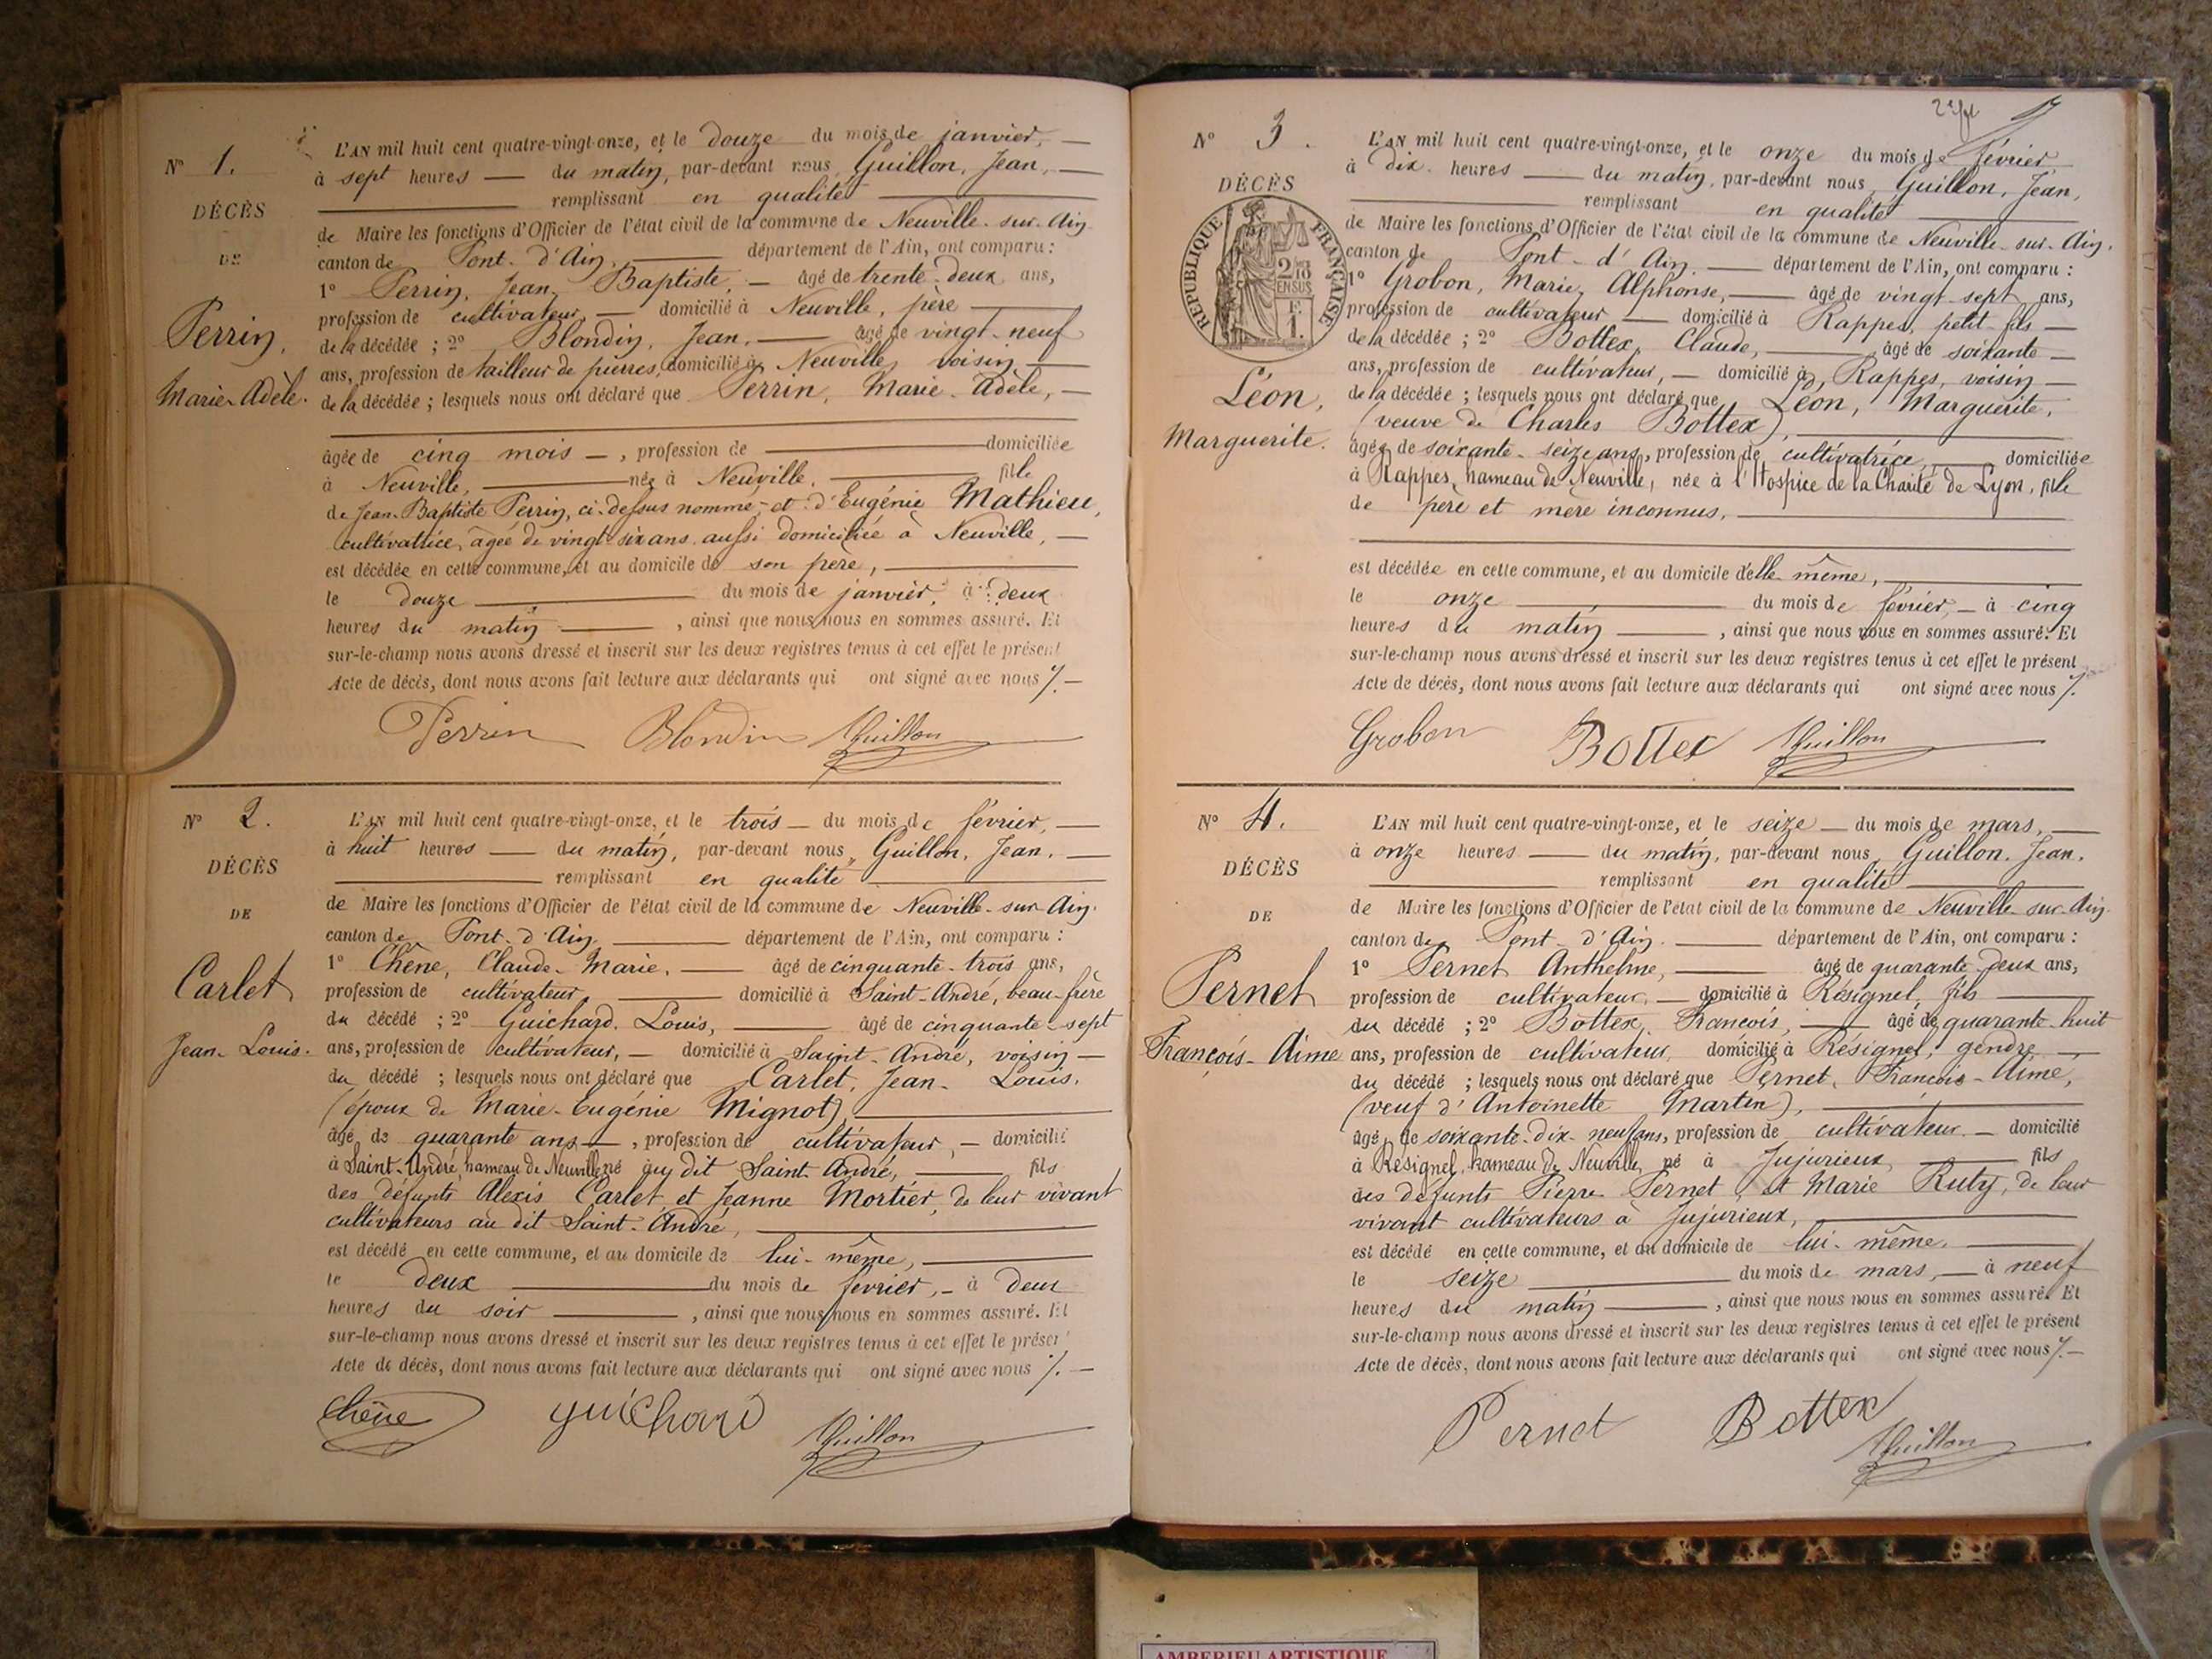 N° 1.
DÉCÈS
DE
Perrin,
Marie-Adèle.
L'AN mil huit cent quatre-vingt-onze, et le douze du mois de janvier,
à sept heures du matin, par-devant nous Guillon, Jean,
remplissant en qualité
de Maire les fonctions d'Officier de l'état civil de la commune de Neuville-sur-Ain
canton de Pont-d'Ain, département de l'Ain, ont comparu :
1° Perrin, Jean Baptiste, âgé de trente-deux ans,
profession de cultivateur, domicilié à Neuville, père
de la décédée ; 2° Blondin, Jean, âgé de vingt-neuf
ans, profession de tailleur de pierres, domicilié à Neuville, voisin
de la décédée ; lesquels nous ont déclaré que Perrin, Marie-Adèle,
âgée de cinq mois, profession de domiciliée
à Neuville, née à Neuville, fille
de Jean-Baptiste Perrin, ci-dessus nommé, et d'Eugénie Mathieu,
cultivatrice, âgée de vingt-six ans, aussi domiciliée à Neuville,
est décédée en cette commune, et au domicile de son père,
le douze du mois de janvier, à deux
heures du matin, ainsi que nous nous en sommes assuré. Et
sur-le-champ nous avons dressé et inscrit sur les deux registres tenus à cet effet le présent
Acte de décès, dont nous avons fait lecture aux déclarants qui ont signé avec nous ./.
Perrin Blondin Guillon
N° 2.
DÉCÈS
DE
Carlet
Jean-Louis.
L'AN mil huit cent quatre-vingt-onze, et le trois du mois de février,
à huit heures du matin, par-devant nous, Guillon, Jean,
remplissant en qualité
de Maire les fonctions d'Officier de l'état civil de la commune de Neuville-sur-Ain.
canton de Pont-d'Ain, département de l'Ain, ont comparu :
1° Chêne, Claude-Marie, âgé de cinquante-trois ans,
profession de cultivateur, domicilié à Saint-André, beau-frère
du décédé ; 2° Guichard, Louis, âgé de cinquante-sept
ans, profession de cultivateur, domicilié à Saint-André, voisin
du décédé ; lesquels nous ont déclaré que Carlet, Jean-Louis,
(époux de Marie-Eugénie Mignot)
âgé de quarante ans, profession de cultivateur, domicilié
à Saint-André, hameau de Neuville né au dit Saint-André, fils
des défunts Alexis Carlet et Jeanne Mortier, de leur vivant
cultivateurs au dit Saint-André,
est décédé en cette commune, et au domicile de lui-même,
le deux du mois de février, à deux
heures du soir, ainsi que nous nous en sommes assuré. Et
sur-le-champ nous avons dressé et inscrit sur les deux registres tenus à cet effet le présent
Acte de décès, dont nous avons fait lecture aux déclarants qui ont signé avec nous ./.
Chêne guichard Guillon
N° 3.
DÉCÈS
RÉPUBLIQUE FRANÇAISE
2/10
EN SUS
1 F.
Léon,
Marguerite.
L'AN mil huit cent quatre-vingt-onze, et le onze du mois de février
à dix heures du matin, par-devant nous, Guillon, Jean,
remplissant en qualité
de Maire les fonctions d'Officier de l'état civil de la commune de Neuville-sur-Ain,
canton de Pont-d'Ain, département de l'Ain, ont comparu :
1° Grobon, Marie, Alphonse, âgé de vingt-sept ans,
profession de cultivateur domicilié à Rappes, petit-fils
de la décédée ; 2° Bottex, Claude, âgé de soixante
ans, profession de cultivateur, domicilié à Rappes, voisin
de la décédée ; lesquels nous ont déclaré que Léon, Marguerite,
(veuve de Charles Bottex),
âgée de soixante-seize ans, profession de cultivatrice, domiciliée
à Rappes, hameau de Neuville, née à l'Hospice de la Charité de Lyon, fille
de père et mère inconnus,
est décédée en cette commune, et au domicile d'elle-même,
le onze du mois de février, à cinq
heures du matin, ainsi que nous nous en sommes assuré. Et
sur-le-champ nous avons dressé et inscrit sur les deux registres tenus à cet effet le présent
Acte de décès, dont nous avons fait lecture aux déclarants qui ont signé avec nous ./.
Grobon Bottex Guillon
N° 4.
DÉCÈS
DE
Pernet
François-Aimé
L'AN mil huit cent quatre-vingt-onze, et le seize du mois de mars,
à onze heures du matin, par-devant nous, Guillon, Jean,
remplissant en qualité
de Maire les fonctions d'Officier de l'état civil de la commune de Neuville-sur-Ain
canton de Pont-d'Ain. département de l'Ain, ont comparu :
1° Pernet Anthelme, âgé de quarante-deux ans,
profession de cultivateur, domicilié à Résignel, fils
du décédé ; 2° Bottex, François, âgé de quarante-huit
ans, profession de cultivateur, domicilié à Résignel, gendre
du décédé ; lesquels nous ont déclaré que Pernet, François-Aimé,
(veuf d'Antoinette Martin),
âgé de soixante-dix-neuf ans, profession de cultivateur domicilié
à Résignel, hameau de Neuville, né à Jujurieux, fils
des défunts Pierre Pernet, et Marie Ruty, de leur
vivant cultivateurs à Jujurieux,
est décédé en cette commune, et au domicile de lui-même.
le seize du mois de mars, à neuf
heures du matin, ainsi que nous nous en sommes assuré. Et
sur-le-champ nous avons dressé et inscrit sur les deux registres tenus à cet effet le présent
Acte de décès, dont nous avons fait lecture aux déclarants qui ont signé avec nous ./.
Pernet Bottex Guillon
AMBERIEU ARTISTIQUE